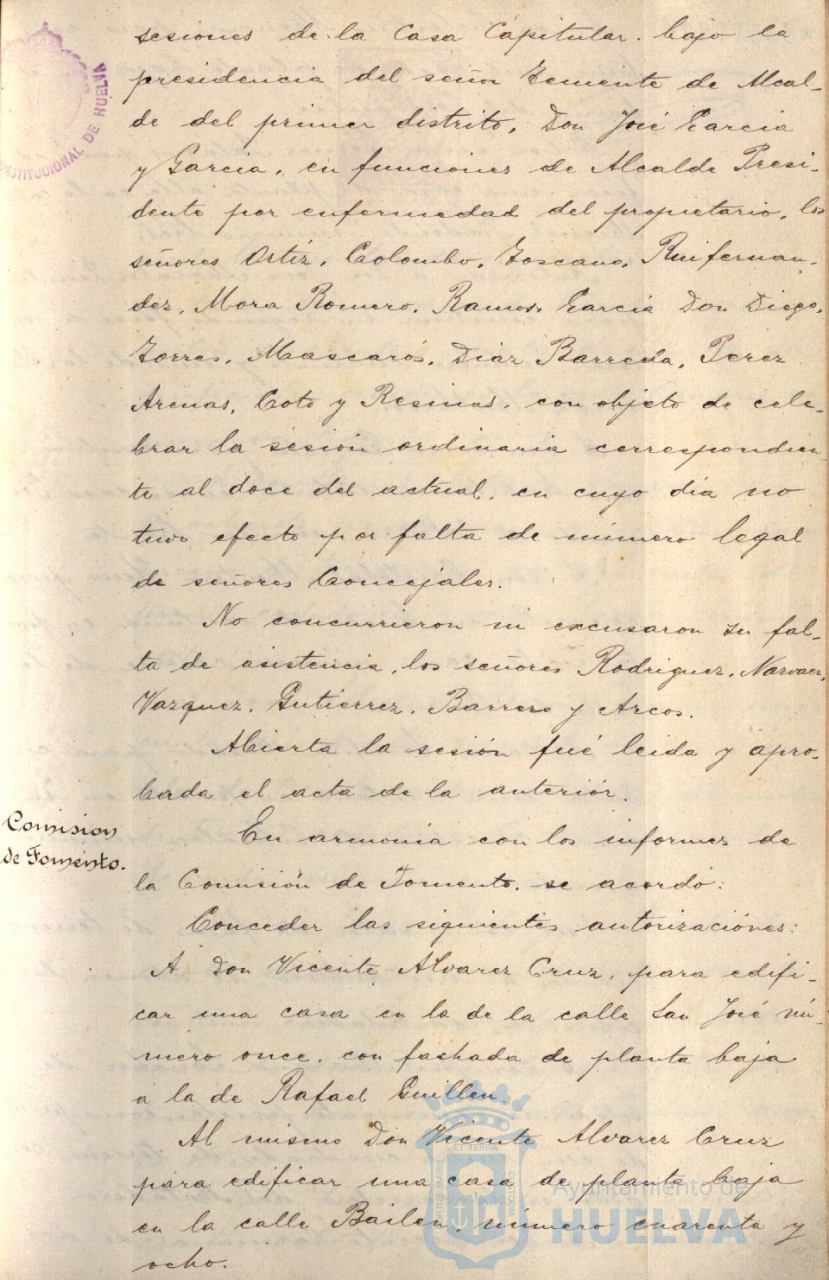 sesiones de la Casa Capitular. bajo la
presidencia del señor Teniente de Alcal-
de del primer distrito, Don José Garcia
y Garcia, en funciones de Alcalde Presi-
dente por enfermedad del propietario, los
señores Ortíz, Colombo, Toscano, Ruifernan-
dez, Mora Romero, Ramos, Garcia Don Diego,
Torres, Mascarós, Diaz Barreda, Perez
Arenas, Coto y Resinas, con objeto de cele-
brar la sesión ordinaria correspondien-
te al doce del actual, en cuyo dia no
tuvo efecto por falta de número legal
de señores Concejales.
No concurrieron ni excusaron su fal-
ta de asistencia, los señores Rodriguez, Narvaez,
Vazquez, Gutierrez, Barrero y Arcos.
Abierta la sesión fué leida y apro-
bada el acta de la anteriór.
Comision
de Fomento.
En armonia con los informes de
la Comisión de Fomento, se acordó:
Conceder las siguientes autorizaciónes:
A Don Vicente Alvarez Cruz, para edifi-
car una casa en la de la calle San José nú-
mero once, con fachada de planta baja
a la de Rafael Guillen.
Al mismo Don Vicente Alvarez Cruz
para edificar una casa de planta baja
en la calle Bailen, número cuarenta y
ocho.
CONSTITUCIONAL DE HUELVA
PORTUS MARIS ET TERRÆ CUSTODIA
Ayuntamiento de
HUELVA